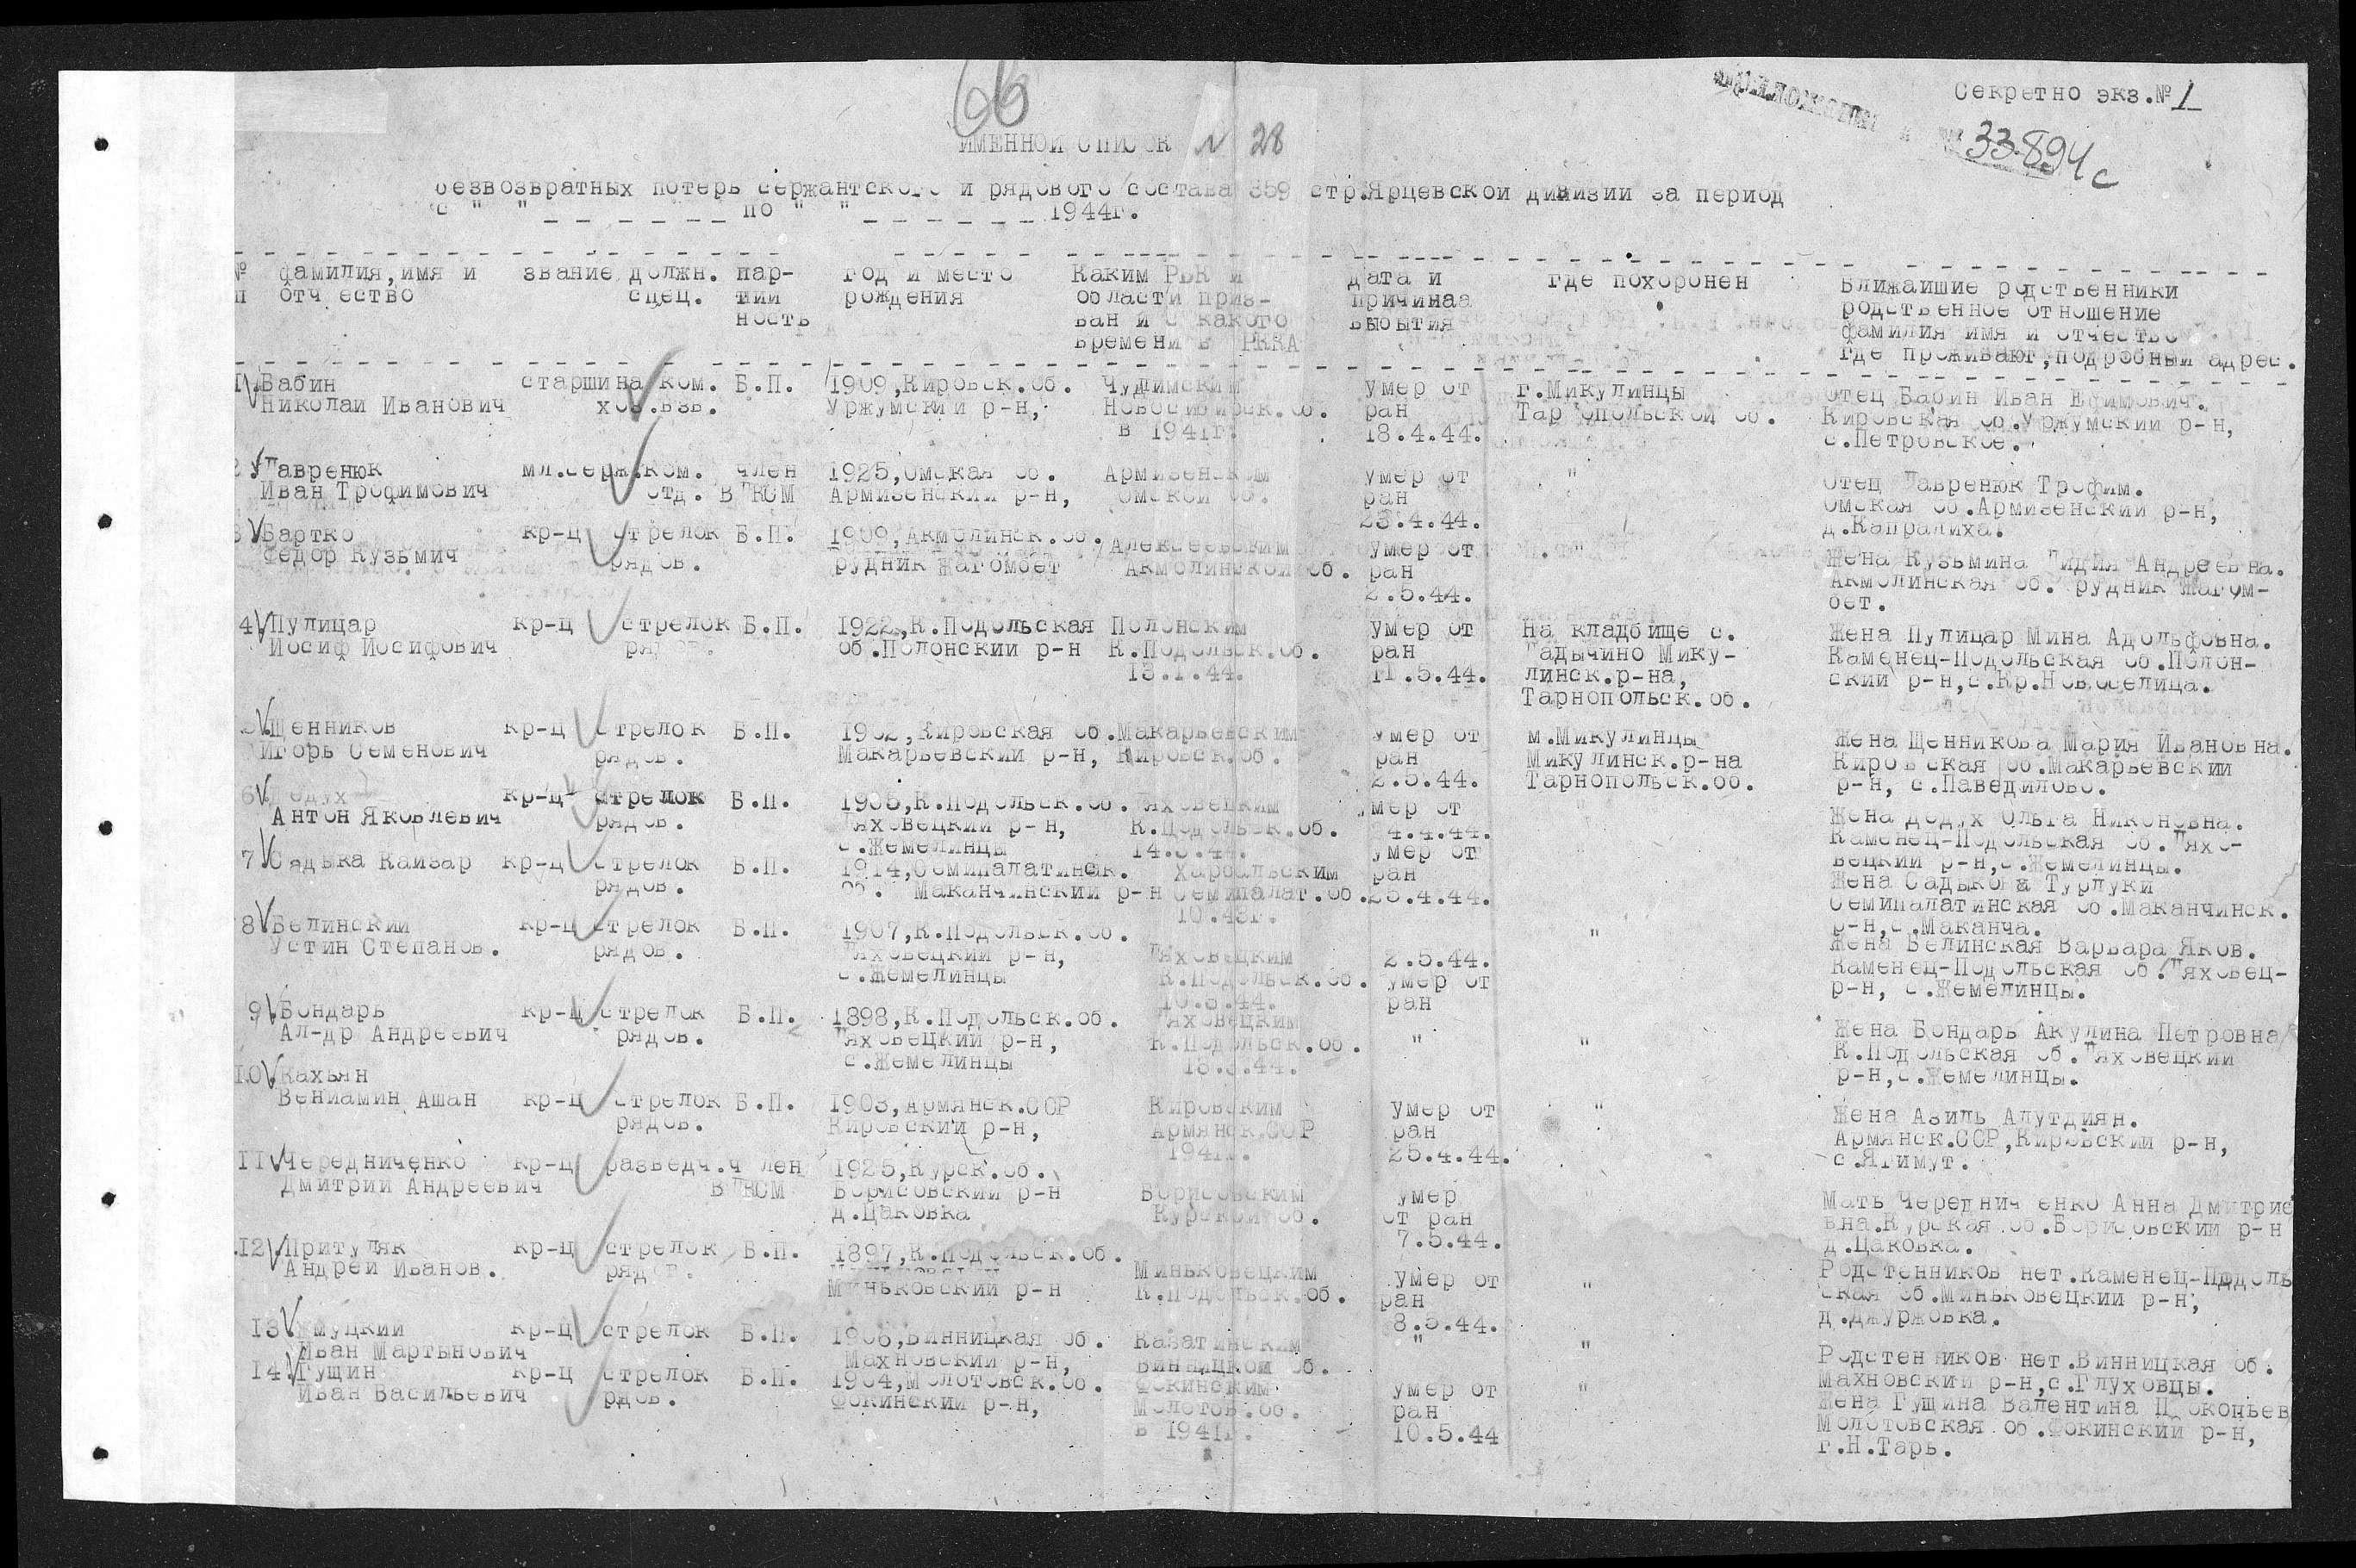 66
Секретно экз.№ 1
33894с
ИМЕННОЙ СПИСОК N 28
безвозвратных потерь сержантского и рядового состава 359 стр.Ярцевской дивизии за период
с " " _ _ _ _ _ _ _ по " " _ _ _ _ _ _ 1944г.
№ фамилия,имя и звание должн. пар- год и место Каким РВК и дата и где похоронен Ближайшие родственники
п отчество спец. тий рождения области приз- причинаа родственное отношение
ность ван и с какого выбытия фамилия имя и отчество
времени в РККА где проживают,подробный адрес.
1. Бабин старшина ком. Б.П. 1909,Кировск.об. Чудимским умер от г.Микулинцы отец Бабин Иван Ефимович.
Николай Иванович хоз.взв. Уржумский р-н, Новосибирск.об. ран Тарнопольской об. Кировская об.Уржумский р-н,
в 1941г. 18.4.44. с.Петровское.
2. Лавренюк мл.серж.ком. член 1925,Омская об. Армизенским умер от " отец Лавренюк Трофим.
Иван Трофимович отд. ВЛКСМ Армизенский р-н, Омской об. ран Омская об.Армизенский р-н,
23.4.44. д.Капралиха.
3 Бартко кр-ц стрелок Б.П. 1909,Акмолинск.об. Алексеевским умер от " Жена Кузьмина Лидия Андреевна.
Федор Кузьмич рядов. рудник Жагомбет Акмолинской об. ран Акмолинская об. рудник Жагом-
2.5.44. бет.
4 Пулицар кр-ц стрелок Б.П. 1922,К.Подольская Полонским умер от На кладбище с. Жена Пулицар Мина Адольфовна.
Иосиф Иосифович рядов. об.Полонский р-н К.Подольск.об. ран Ладычино Мику- Каменец-Подольская об.Полон-
13.1.44. 11.5.44. линск.р-на, ский р-н,с.Кр.Новоселица.
Тарнопольск.об.
5. Щенников кр-ц стрелок Б.П. 1902,Кировская об.Макарьевским умер от м.Микулинцы Жена Щенникова Мария Ивановна.
Игорь Семенович рядов. Макарьевский р-н, Кировск.об. ран Микулинск.р-на Кировская об.Макарьевский
2.5.44. Тарнопольск.об. р-н, с.Паведилово.
6. Додух кр-ц стрелок Б.П. 1905,К.Подольск.об. Ляховецким умер от " Жена Додух Ольга Никоновна.
Антон Яковлевич рядов. Ляховецкий р-н, К.Подольск.об. 4.4.44. Каменец-Подольская об.Ляхо-
с.Жемелинцы 14.3.44. вецкий р-н,с.Жемелинцы.
7. Садыка Каизар кр-ц стрелок Б.П. 1914,Семипалатинск. умер от Жена Садыкова Турлуки
рядов. об. Маканчинский р-н Семипалат.об. ран 25.4.44. Семипалатинская об.Маканчинск.
10.43г. р-н,с.Маканча.
8 Белинский кр-ц стрелок Б.П. 1907,К.Подольск.об. Ляховецким 2.5.44. " Жена Белинская Варвара Яков.
Устин Степанов. рядов. Ляховецкий р-н, К.Подольск.об. умер от Каменец-Подольская об.Ляховец-
с.Жемелинцы 10.3.44. ран р-н, с.Жемелинцы.
9. Бондарь кр-ц стрелок Б.П. 1898,К.Подольск.об. Ляховецким " " Жена Бондарь Акулина Петровна
Ал-др Андреевич рядов. Ляховецкий р-н, К.Подольск.об. К.Подольская об.Ляховецкий
с.Жемелинцы 13.3.44. р-н,с.Жемелинцы.
10. Кахьян
Вениамин Ашан кр-ц стрелок Б.П. 1903,Армянск.ССР Кировским умер от " Жена Азиль Алутдиян.
рядов. Кировский р-н, Армянск.ССР ран Армянск.ССР,Кировский р-н,
1941г. 25.4.44. с.Ягимут.
11. Чередниченко кр-ц разведч.член 1925,Курск.об. Борисовским умер " Мать Чередниченко Анна Дмитрие
Дмитрий Андреевич ВЛКСМ Борисовский р-н Курской об. от ран вна.Курская об.Борисовский р-н
д.Цаковка 7.5.44. д.Цаковка.
12. Притуляк кр-ц стрелок Б.П. 1897,К.Подольск.об. Миньковецким умер от " Родстенников нет.Каменец-Подоль
Андрей Иванов. рядов. Миньковский р-н К.Подольск.об. ран ская об.Миньковецкий р-н,
8.5.44. д.Джуржовка.
13 Жмуцкий кр-ц стрелок Б.П. 1906,Винницкая об. Казатинским " " Родстенников нет.Винницкая об.
Иван Мартынович Махновский р-н, Винницкой об. Махновский р-н,с.Глуховцы.
14. Гущин кр-ц стрелок Б.П. 1904,Молотовск.об. Фокинским умер от " Жена Гущина Валентина Прокопьев
Иван Васильевич рдов. Фокинский р-н, Молотов.об. ран Молотовская об.Фокинский р-н,
в 1941г. 10.5.44 г.Н.Тарь.